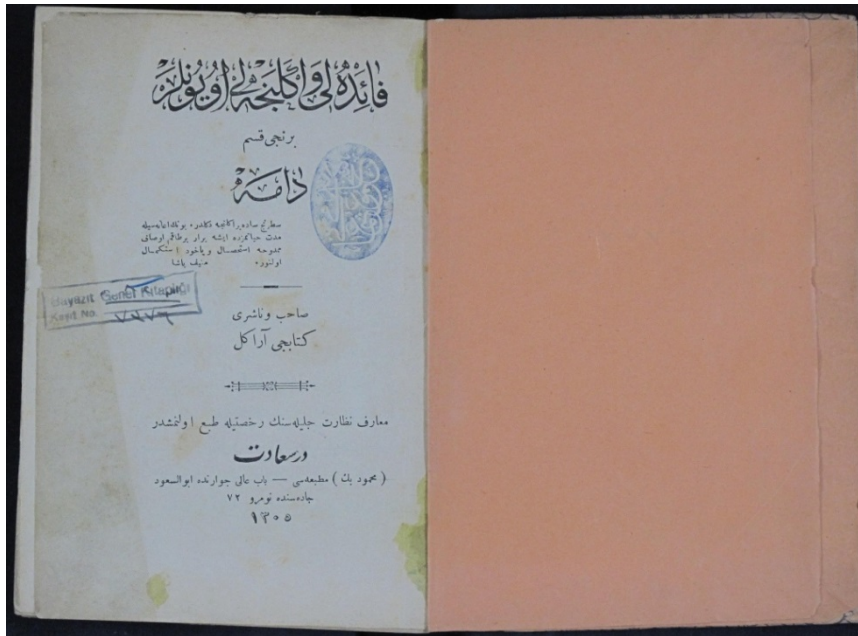 فائده لی و اگلنجه لی اویونلر
برنجی قسم
دامه
سطرنج ساده بر اكلنجه دكلدر، بونك اعانه سيله
مدت حياتمزده ايشه يرار برطاقم اوصاف
ممدوحه استحصال وياخود استكمال
اولنور. منيف پاشا
Bayazıt Genel Kitaplığı
Kayıt No.
صاحب وناشرى
كتابجى آراكل
معارف نظارت جليله سنك رخصتيله طبع اولنمشدر
درسعادت
( محمود بك ) مطبعه سى — باب عالى جوارنده ابوالسعود
جاده سنده نومرو ٧٢
١٣٠٥